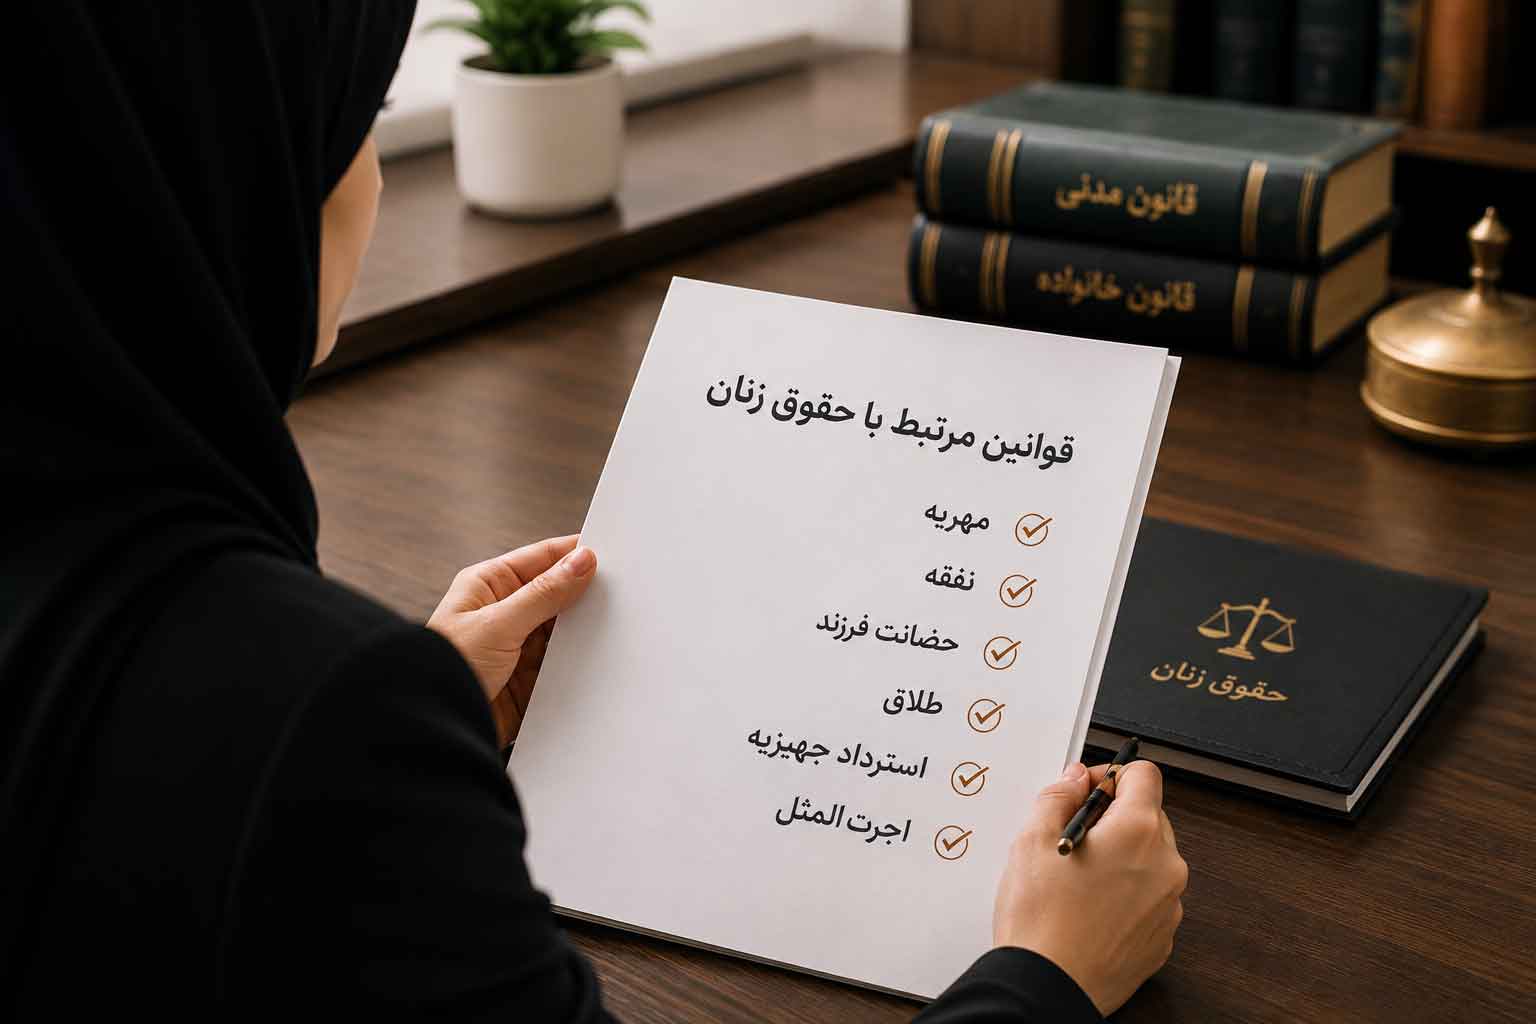 قانون مدنی
قانون خانواده
قوانین مرتبط با حقوق زنان
مهریه
نفقه
حضانت فرزند
طلاق
استرداد جهیزیه
اجرت‌المثل
حقوق زنان